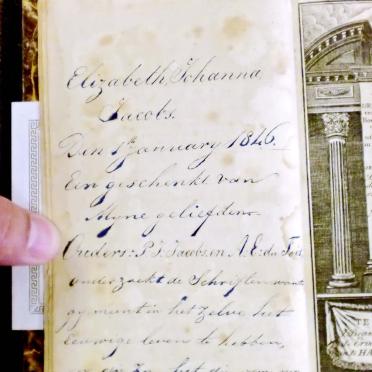 Elizabeth Johanna
Jacobs.
Den 1st January 1846.
Een geschenkt van
Myne geliefden
Ouders: P. J. Jacobs en A. E: du Toit
onderzoekt de Schriften want
gy meent in het zelve het
Eeuwege leven te hebben,
TE